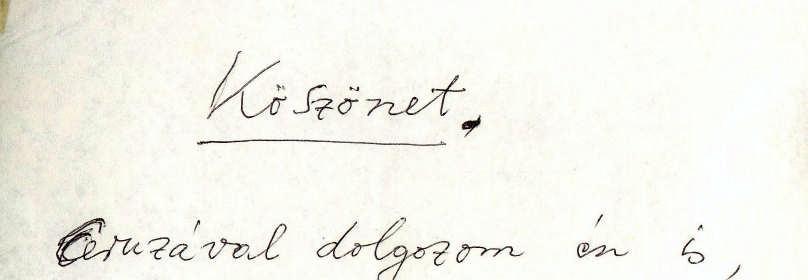 Köszönet.
Ceruzával dolgozom én is,